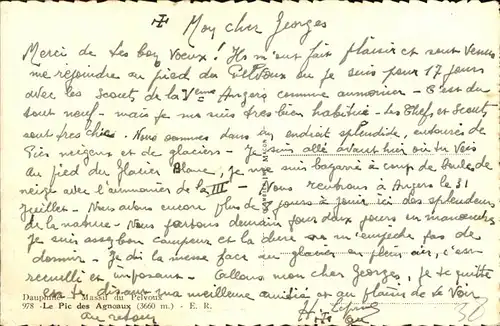 ✝ Mon cher Georges
Merci de tes bons vœux ! Ils m'ont fait plaisir et sont venus
me rejoindre au pied du Pelvoux où je suis pour 17 jours
avec les Scouts de la Vème Angers comme aumonier - C'est du
tout neuf - mais je me suis très bien habitué - Les Chefs et Scouts
sont très chics - Nous sommes dans un endroit splendide, entourés de
Pics neigeux et de glaciers - Je suis allé avant hier où tu vois
au pied du Glacier Blanc, je me suis bagarré à coup de boules de
neige avec l'aumonier de la III - Nous rentrons à Angers le 31
juillet - Nous avons encore plus de 8 jours à jouir ici des splendeurs
de la nature - Nous partons demain pour deux jours en manœuvres
Je suis assez bon campeur et la dure ne m'empêche pas de
dormir - Je dis la messe face au glacier en plein air, c'est
recueilli et imposant - Allons mon cher Georges, je te quitte
en te disant ma meilleure amitié et au plaisir de te voir
au retour
Dauphiné - Massif du Pelvoux
978 - Le Pic des Agneaux (3660 m.) - E. R.
H.
38